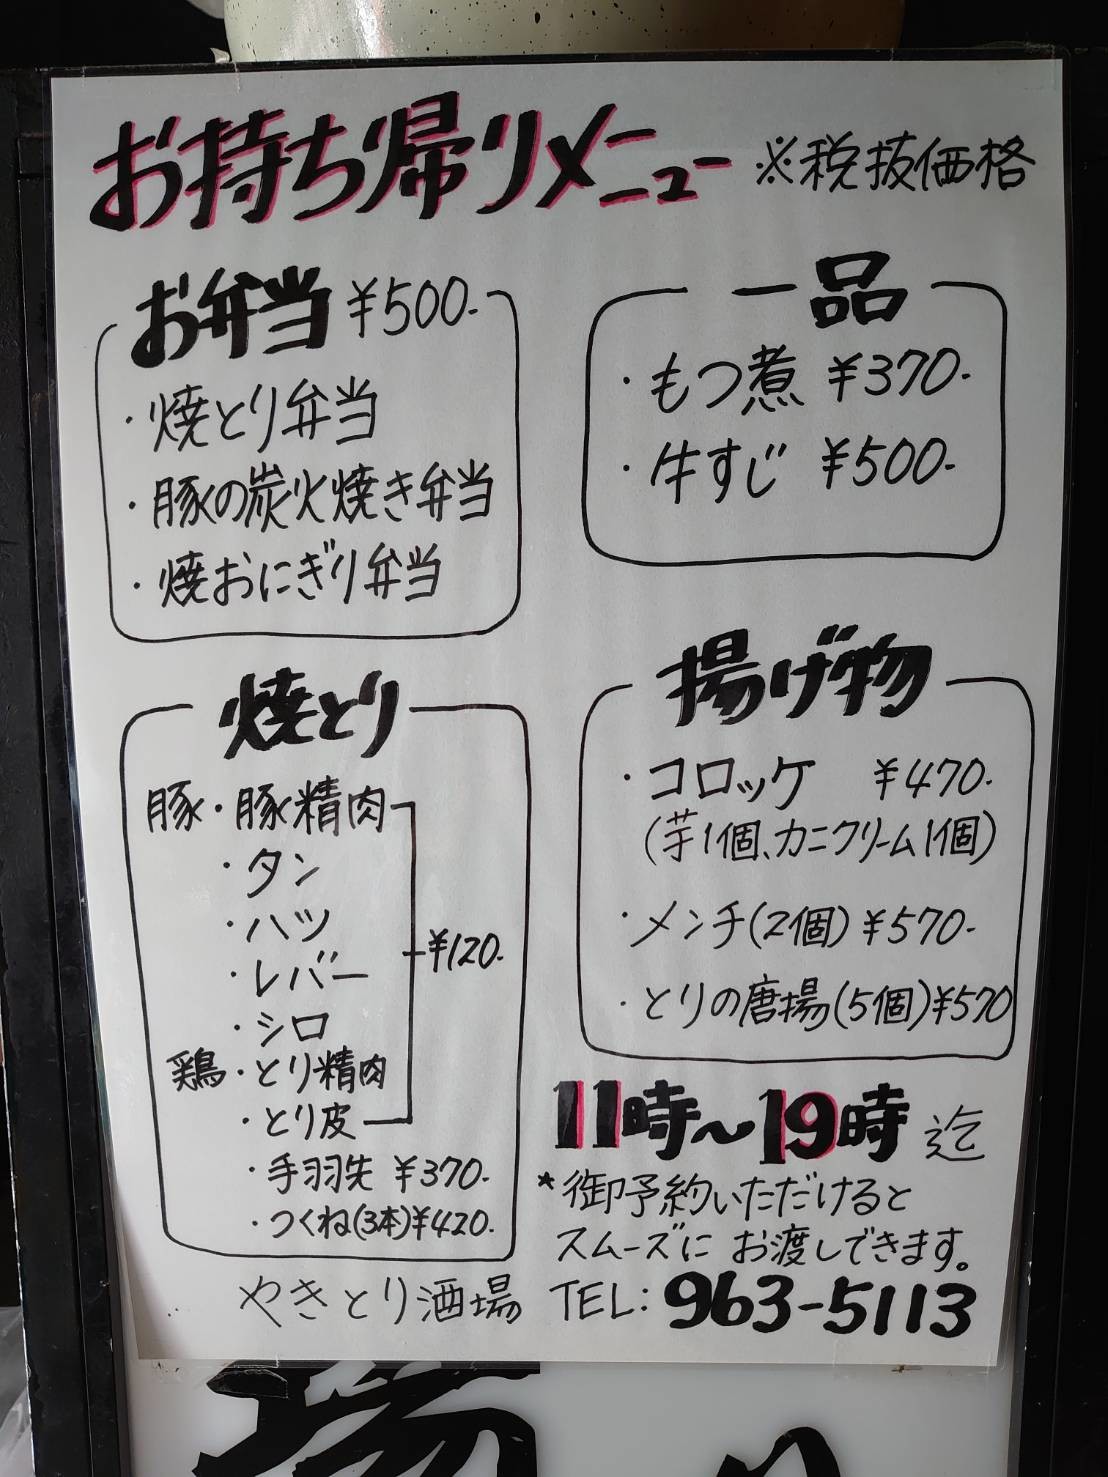 お持ち帰りメニュー ※税抜価格
お弁当 ¥500-
・焼とり弁当
・豚の炭火焼き弁当
・焼おにぎり弁当
一品
・もつ煮 ¥370-
・牛すじ ¥500-
焼とり
豚・豚精肉
・タン
・ハツ
・レバー
・シロ
鶏・とり精肉
・とり皮
¥120-
・手羽先 ¥370-
・つくね(3本)¥420-
揚げ物
・コロッケ ¥470-
(芋1個、カニクリーム1個)
・メンチ(2個) ¥570-
・とりの唐揚(5個)¥570
11時〜19時 迄
*御予約いただけると
スムーズに お渡しできます。
やきとり酒場 TEL: 963-5113